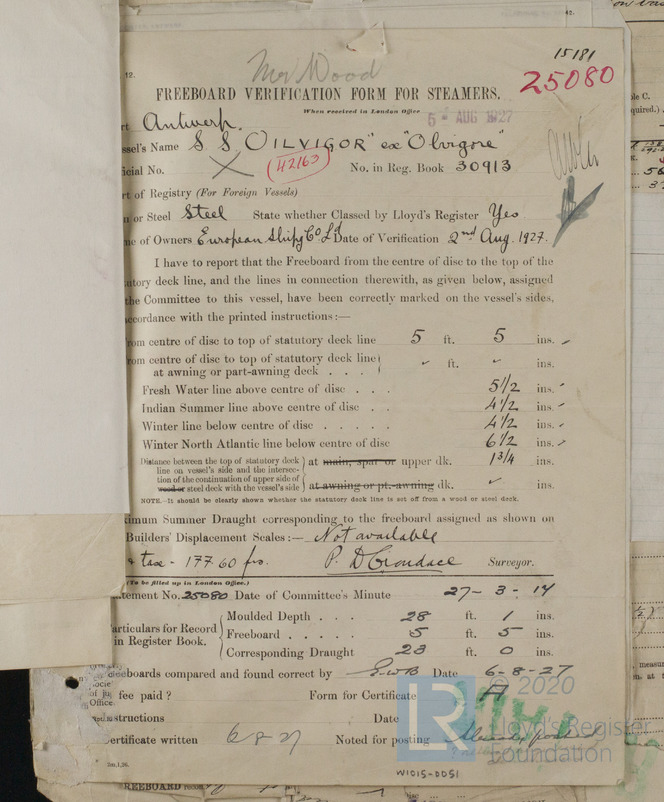 15181
12.
Mr Wood
25080
FREEBOARD VERIFICATION FORM FOR STEAMERS.
When received in London Office
5 AUG 1927
rt Antwerp.
ssel's Name S.S. "OILVIGOR" ex "Olvigore"
icial No. X (42163) No. in Reg. Book 30913
rt of Registry (For Foreign Vessels)
n or Steel Steel State whether Classed by Lloyd's Register Yes
me of Owners European Shipg Co Ld Date of Verification 2nd Aug. 1927.
I have to report that the Freeboard from the centre of disc to the top of the
utory deck line, and the lines in connection therewith, as given below, assigned
the Committee to this vessel, have been correctly marked on the vessel's sides,
ccordance with the printed instructions:—
rom centre of disc to top of statutory deck line 5 ft. 5 ins.
rom centre of disc to top of statutory deck line
at awning or part-awning deck . . . ft. ins.
Fresh Water line above centre of disc . . . 5 1/2 ins.
Indian Summer line above centre of disc . . 4 1/2 ins.
Winter line below centre of disc . . . . . 4 1/2 ins.
Winter North Atlantic line below centre of disc 6 1/2 ins.
Distance between the top of statutory deck
line on vessel's side and the intersec-
tion of the continuation of upper side of
wood or steel deck with the vessel's side
at main, spar or upper dk. 1 3/4 ins.
at awning or pt.-awning dk. ins.
NOTE.—It should be clearly shown whether the statutory deck line is set off from a wood or steel deck.
ximum Summer Draught corresponding to the freeboard assigned as shown on
Builders' Displacement Scales:— Not available
& tax - 177.60 frs. P. D Crondace Surveyor.
(To be filled up in London Office.)
tement No. 25080 Date of Committee's Minute 27-3-14
articulars for Record
in Register Book.
Moulded Depth . . . 28 ft. 1 ins.
Freeboard . . . . . 5 ft. 5 ins.
Corresponding Draught 23 ft. 0 ins.
eeboards compared and found correct by E.W.B Date 6-8-27
fee paid? Form for Certificate A
structions Date
ertificate written 6 8 27 Noted for posting
2m,1,26.
W1015-0051
© 2020
LR
Lloyd's Register
Foundation
REEBOARD